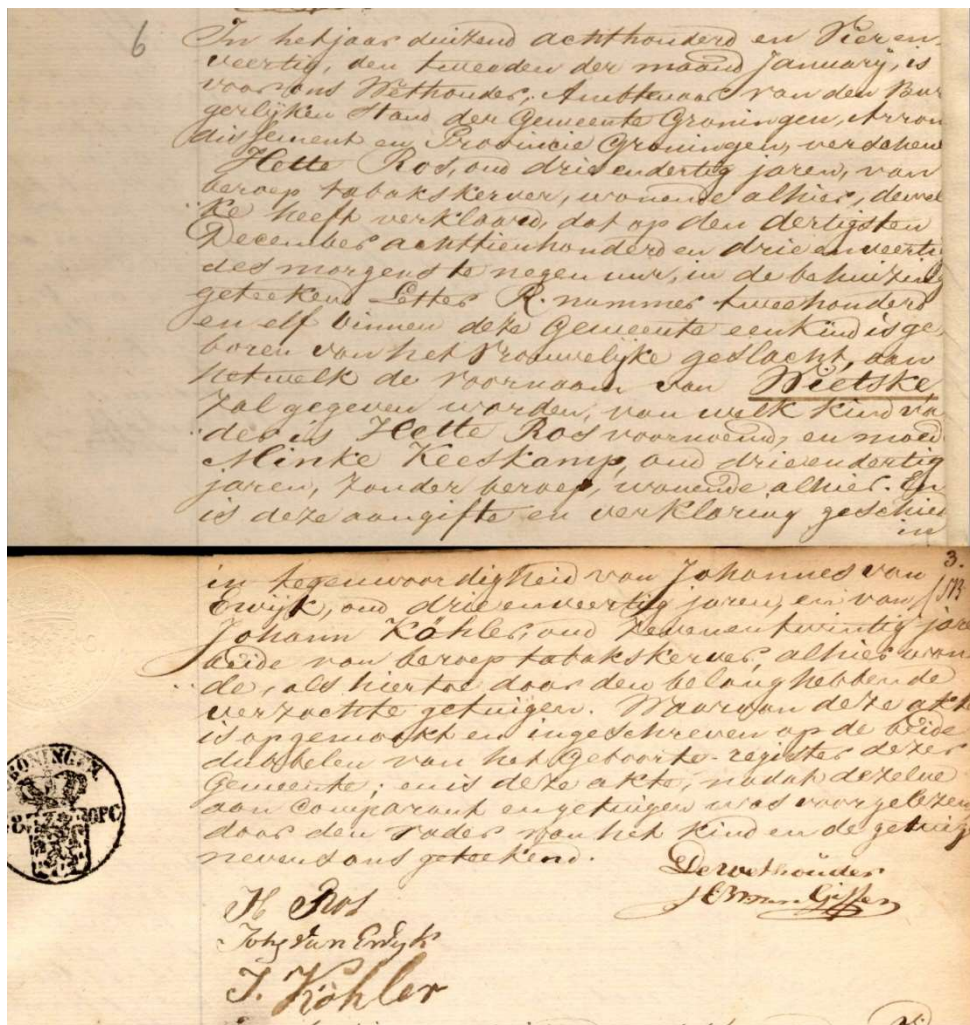 6
In het jaar duizend achthonderd en Vier en
veertig, den tweeden der maand January, is
voor ons Wethouder, Ambtenaar van den Bur
gerlijken Stand der Gemeente Groningen, Arron
dissement en Provincie Groningen, verschenen
Hette Ros, oud drie en dertig jaren, van
beroep tabakskerver, wonende alhier, dewel
ke heeft verklaard, dat op den dertigsten
December achttienhonderd en drie en veertig
des morgens te negen uur, in de behuizing
geteekend Letter R. nummer tweehonderd
en elf binnen deze Gemeente een kind is ge
boren van het Vrouwelijke geslacht, aan
hetwelk de voornaam van Wietske
zal gegeven worden, van welk kind va
der is Hette Ros voornoemd, en moed
Minke Keeskamp, oud drie en dertig
jaren, zonder beroep, wonende alhier. En
is deze aangifte en verklaring geschied
in
3.
in tegenwoordigheid van Johannes van
Ewijk, oud drie en veertig jaren, en van
Johann Köhler, oud zeven en twintig jare
beide van beroep tabakskerver, alhier wonen
de, als hiertoe door den belanghebbende
verzochte getuigen. Waarvan deze akte
is opgemaakt en ingeschreven op de beide
dubbelen van het Geboorte-register dezer
Gemeente; en is deze akte, nadat dezelve
aan Comparant en getuigen was voorgelezen
door den vader van het kind en de getuig
nevens ons geteekend.
De Wethouder
van Giffen
H Ros
Johs van Ewijk
J. Köhler
GRONINGEN